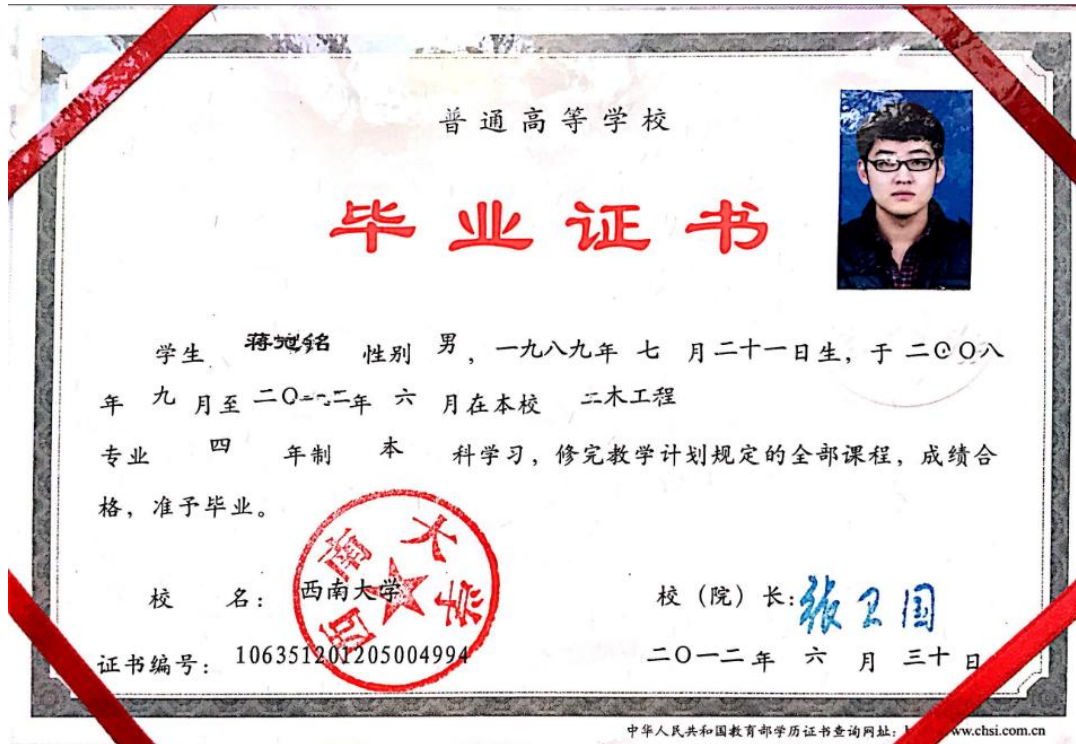 普通高等学校
毕业证书
学生 蒋 铭 性别 男，一九八九年 七 月二十一日生，于 二〇〇八
年 九 月至 二〇一二年 六 月在本校 二木工程
专业 四 年制 本 科学习，修完教学计划规定的全部课程，成绩合
格，准予毕业。
西南大学
校 名： 西南大学 校（院）长：张卫国
证书编号： 106351201205004994 二〇一二年 六 月 三十 日
中华人民共和国教育部学历证书查询网址： ww.chsi.com.cn